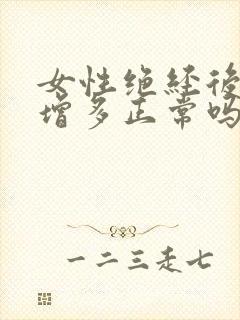 女性绝经後
增多正常吗
一二三走七